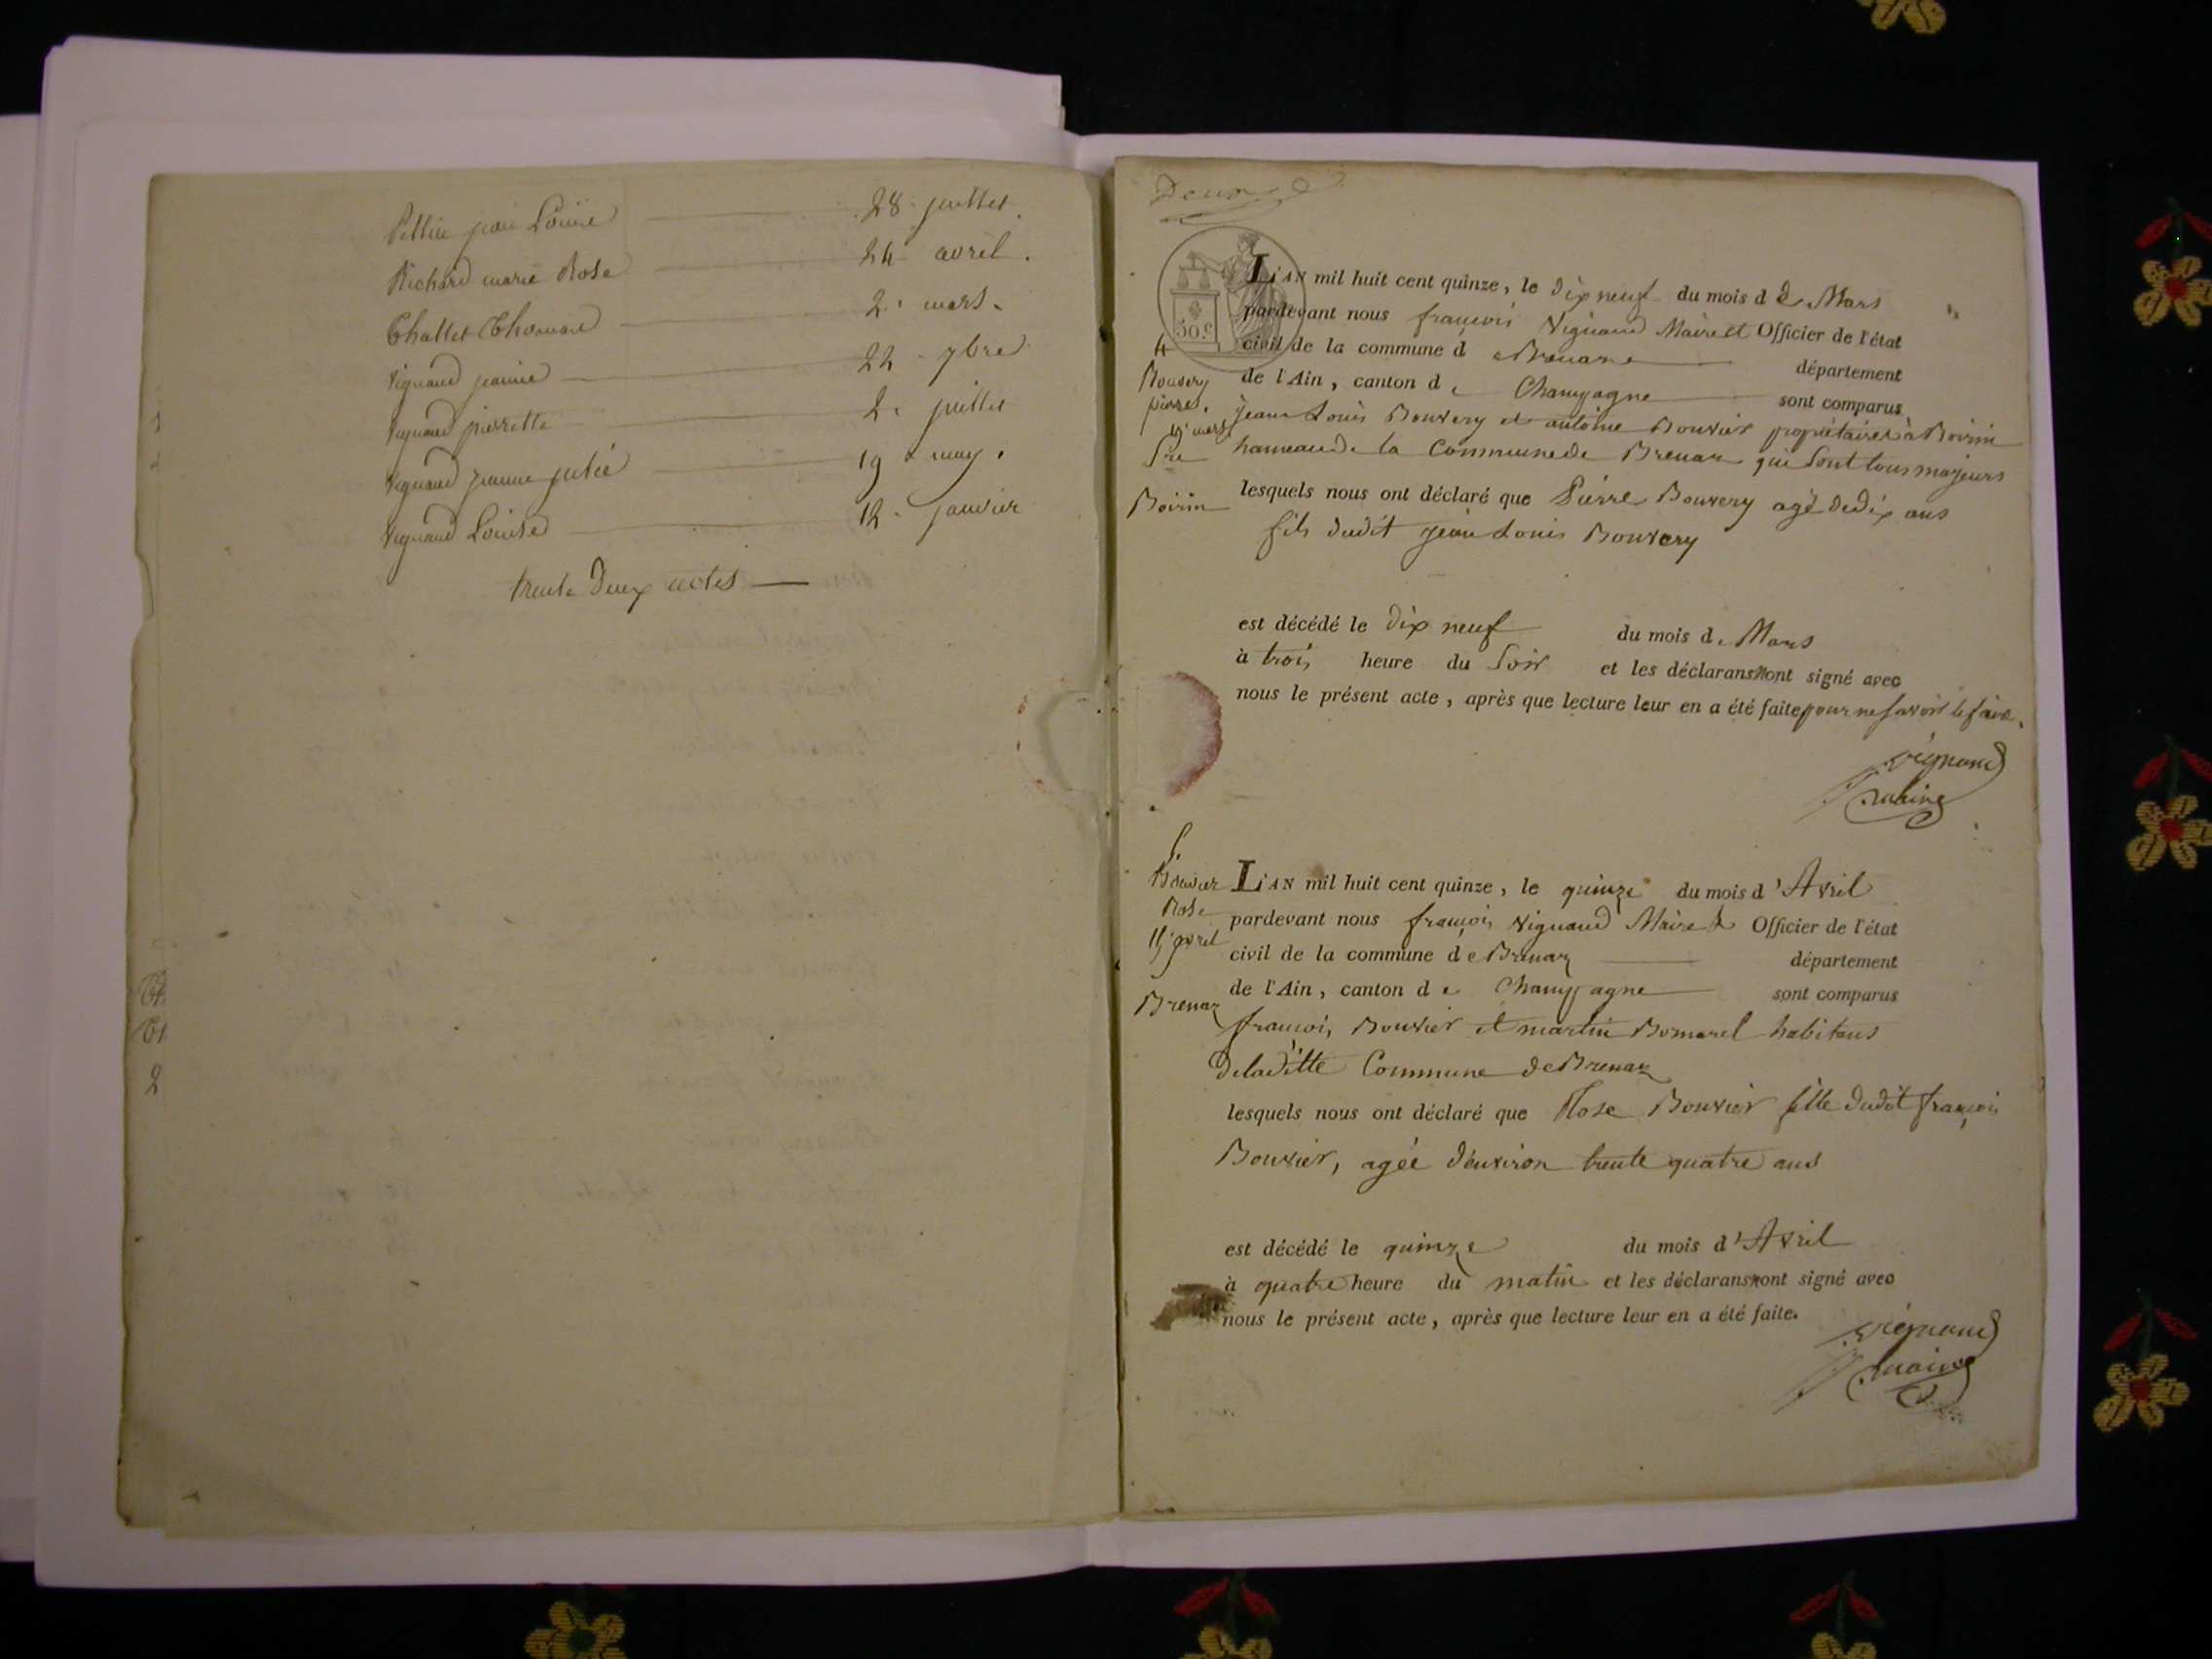 jean Louise 28. juillet.
Richard marie Rose 24 avril.
Challet Thomas 2. mars.
Vignand jeanne 22 7bre
Vignand pierrette 2. juillet
Vignand jeanne julie 19 may.
Vignand Louise 12. janvier
trente Deux actes
Deux
50 c
L'AN mil huit cent quinze, le dix neuf du mois d e Mars
pardevant nous françois Vignand Maire et Officier de l'état
civil de la commune d e Brenaz département
de l'Ain, canton d e Champagne sont comparus
jean Louis Bouvery et antoine Bouvier propriétaires à Boirin
hameau de la Commune de Brenaz qui sont tous majeurs
lesquels nous ont déclaré que Pierre Bouvery agé de dix ans
fils dudit jean Louis Bouvery
est décédé le dix neuf du mois de Mars
à trois heure du soir et les déclarans n'ont signé avec
nous le présent acte, après que lecture leur en a été faite pour ne savoir le faire.
Vignand
maire
4
Bouvery
pierre.
19 mars
Boirin
5.
Bouvier
Rose
15 avril
Brenaz
L'AN mil huit cent quinze, le quinze du mois d'Avril
pardevant nous françois Vignand Maire & Officier de l'état
civil de la commune d e Brenaz département
de l'Ain, canton d e Champagne sont comparus
françois Bouvier et martin Bomarel habitans
de la ditte Commune de Brenaz
lesquels nous ont déclaré que Rose Bouvier fille dudit françois
Bouvier, agée d'environ trente quatre ans
est décédé le quinze du mois d'Avril
à quatre heure du matin et les déclarans n'ont signé avec
nous le présent acte, après que lecture leur en a été faite.
Vignand
maire